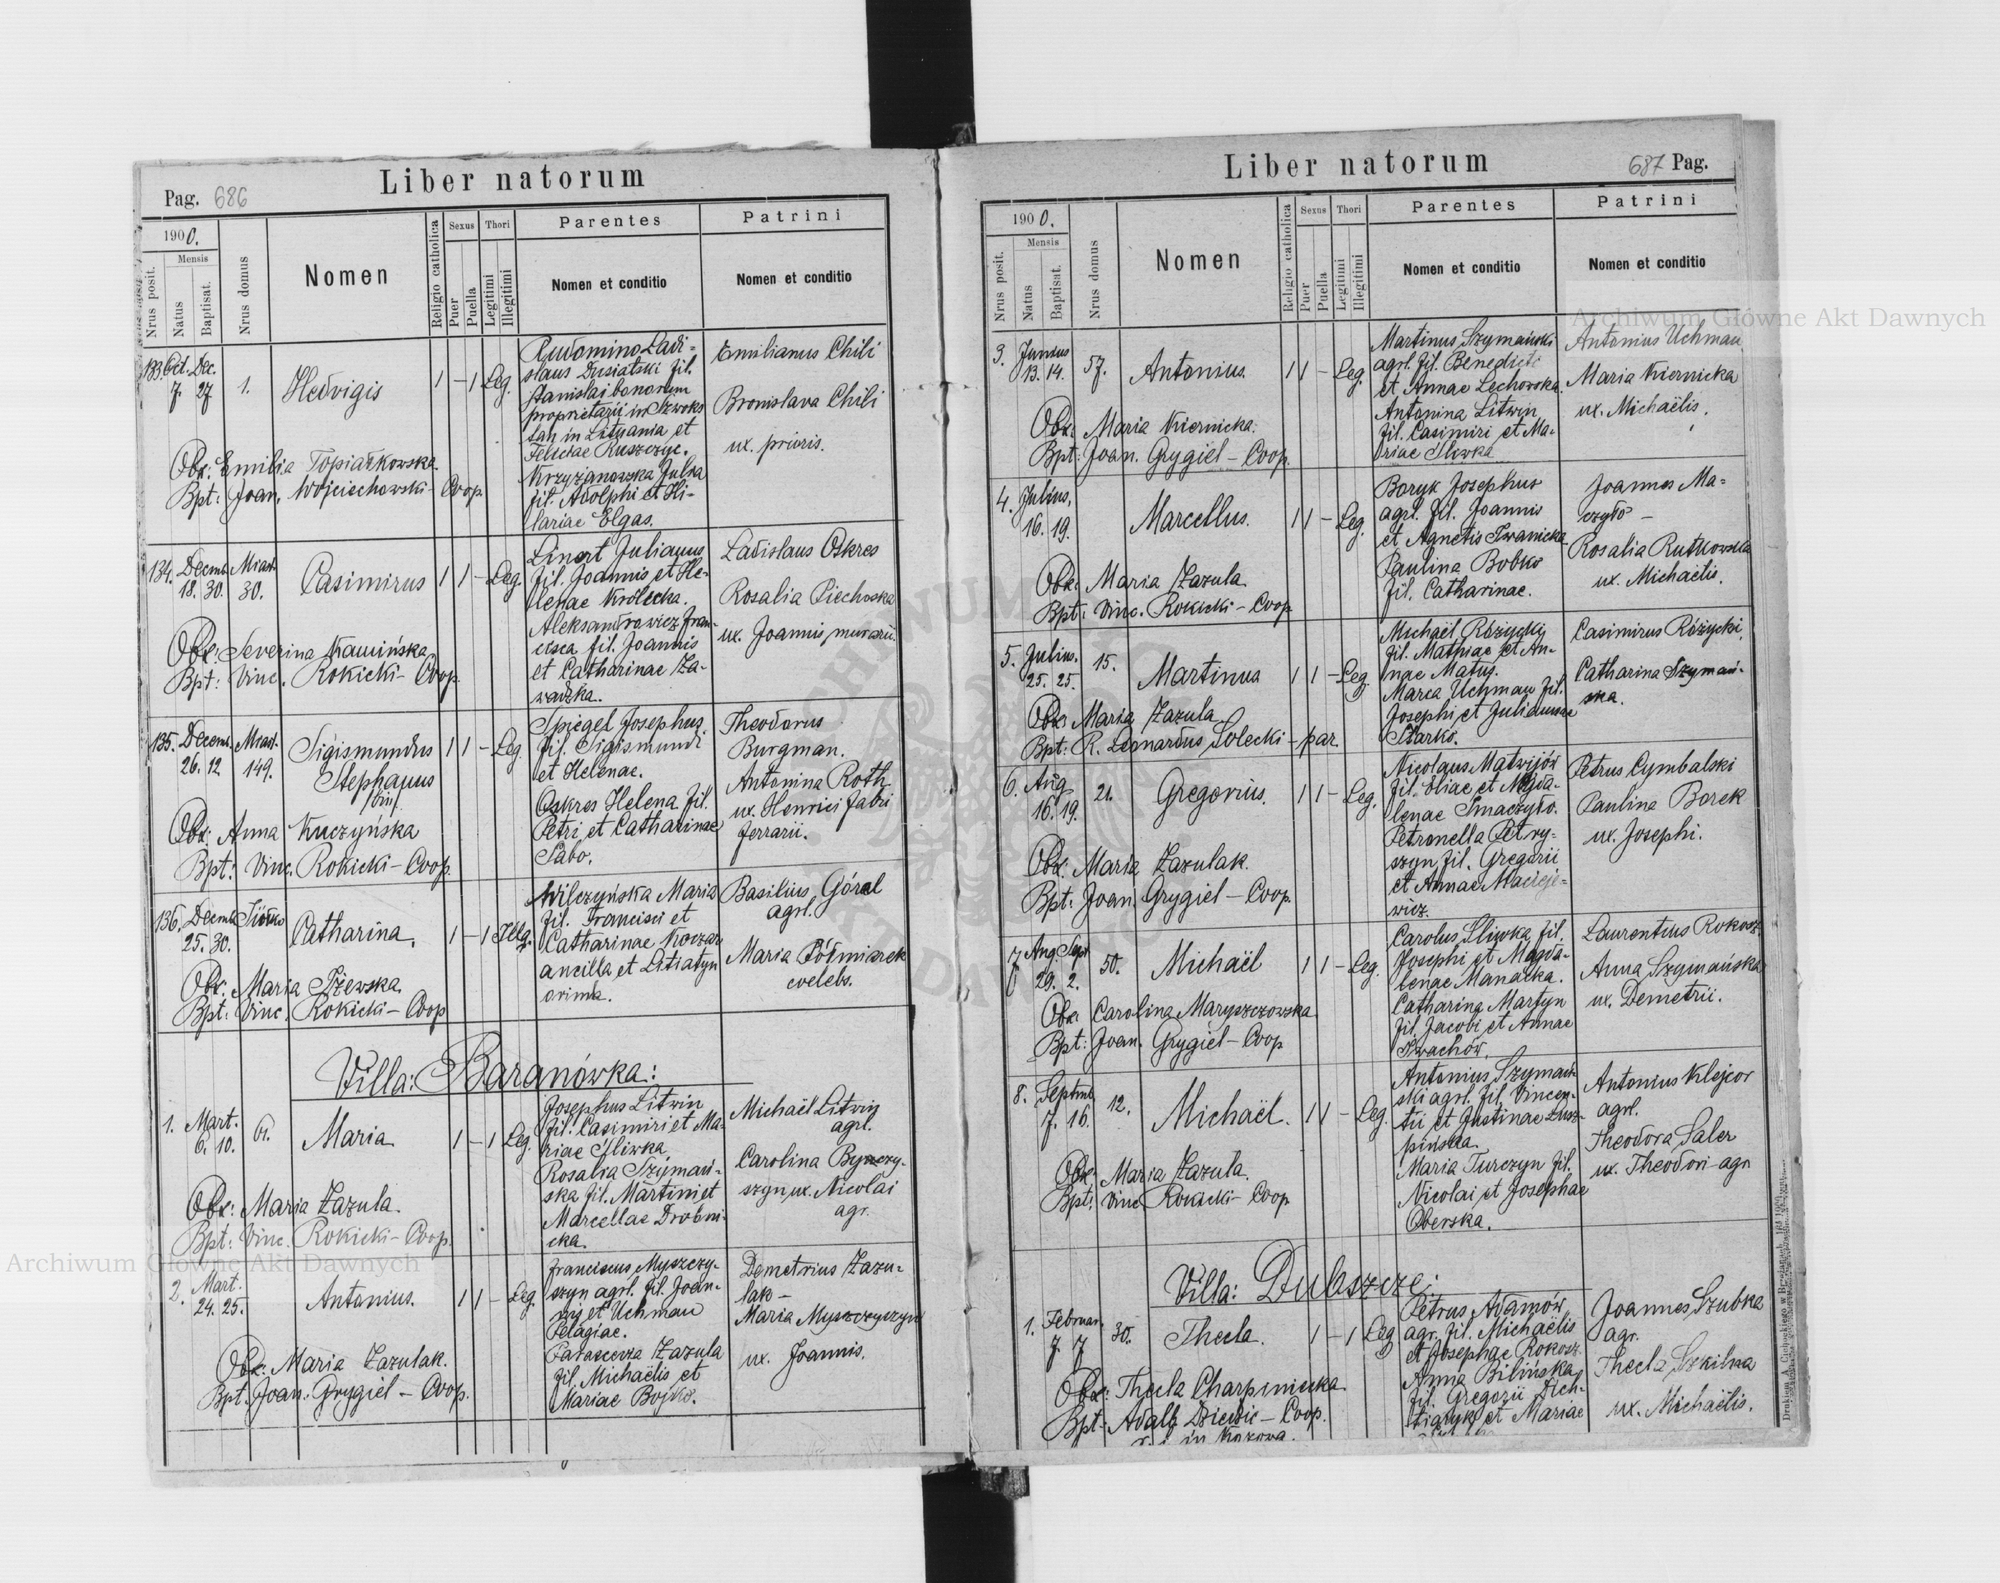 Pag. 686
Liber natorum
1900.
Nrus posit.
Mensis
Natus
Baptisat.
Nrus domus
Nomen
Religio catholica
Sexus
Puer
Puella
Thori
Legitimi
Illegitimi
Parentes
Nomen et conditio
Patrini
Nomen et conditio
133. Oct. Dec.
7. 27
1.
Hedvigis
1 - 1 Leg.
Rudomino Ladi-
slaus Dusiatski fil.
Stanislai bonorum
proprietarii in
in Lituania et
Feliciae Ruszczyc.
Krzyżanowska Julia
fil. Adolphi et Hi-
lariae Elgas.
Emilianus Chili
Bronislava Chili
ux. prioris.
Obx: Emilia Topiarkowska
Bpt: Joan. Wojciechowski - Coop.
134. Decemb. Miast.
18. 30. 30.
Casimirus
1 1 - Leg.
Linert Julianus
fil. Joannis et He-
lenae Królecka.
Aleksandrowicz Fran-
cisca fil. Joannis
et Catharinae Za-
wadzka.
Ladislaus Oskres
Rosalia Piechoska
ux. Joannis murarii.
Obx: Severina Kamińska
Bpt: Vinc. Rokicki - Coop.
135. Decemb. Miast.
26. 12 149.
Sigismundus
Stephanus
bin.
1 1 - Leg.
Spiegel Josephus
fil. Sigismundi
et Helenae.
Oskres Helena fil.
Petri et Catharinae
Sabo.
Theodorus
Burgman.
Antonina Roth
ux. Henrici fabri
ferrarii.
Obx: Anna Kuczyńska
Bpt: Vinc. Rokicki - Coop.
136. Decemb.
25. 30.
Catharina.
1 - 1 Illeg.
Wilczyńska Maria
fil. Francisci et
Catharinae Koczar
ancilla et Litiatyn
Basilius Góral
agrl.
Maria Półmiarek
celebs.
Obx: Maria
Bpt: Vinc. Rokicki - Coop
Villa: Baranówka:
1. Mart.
6. 10.
61.
Maria
1 - 1 Leg.
Josephus Litwin
fil. Casimiri et Ma-
riae Śliwka
Rosalia Szymań-
ska fil. Martini et
Marcellae Drobni-
cka.
Michaël Litwin
agrl.
Carolina
szyn ux. Nicolai
agr.
Obx: Maria Zazula.
Bpt: Vinc. Rokicki - Coop.
2. Mart.
24. 25.
Antonius.
1 1 - Leg.
Franciscus Myszczy-
szyn agrl. fil. Joan-
nis et Uchman
Pelagiae.
Parascevia Zazula
fil. Michaëlis et
Mariae Bojko.
Demetrius Zazu-
lak -
Maria Myszczyszyn
ux. Joannis.
Obx: Maria Zazulak.
Bpt: Joan. Grygiel - Coop.
Liber natorum
687 Pag.
1900.
Nrus posit.
Mensis
Natus
Baptisat.
Nrus domus
Nomen
Religio catholica
Sexus
Puer
Puella
Thori
Legitimi
Illegitimi
Parentes
Nomen et conditio
Patrini
Nomen et conditio
3. Junius
13. 14.
57.
Antonius
1 1 - Leg.
Martinus Szymański
agrl. fil. Benedicti
et Annae Lechowska.
Antonina Litwin
fil. Casimiri et Ma-
riae Śliwka
Antonius Uchman
Maria Kiernicka
ux. Michaëlis.
Obx: Maria Kiernicka.
Bpt: Joan. Grygiel - Coop.
4. Julius.
16. 19.
Marcellus.
1 1 - Leg.
Boryk Josephus
agrl. fil. Joannis
et Agnetis Iwanicka
Paulina Bobko
fil. Catharinae.
Joannes Ma-
czyło -
Rosalia Rutkowska
ux. Michaëlis.
Obx: Maria Zazula
Bpt: Vinc. Rokicki - Coop
5. Julius.
25. 25.
15.
Martinus
1 1 - Leg.
Michaël Różycki
fil. Mathiae et An-
nae Matus.
Maria Uchman fil.
Josephi et Juliannae
Starko.
Casimirus Różycki,
Catharina Szymań-
ska.
Obx: Maria Zazula
Bpt: R. Leonardus Solecki - par.
6. Aug.
16. 19.
21.
Gregorius.
1 1 - Leg.
Nicolaus Matwijów
fil. Eliae et Magda-
lenae Smaczyło.
Petronella Petry-
szyn fil. Gregorii
et Annae Macieje-
wicz.
Petrus Cymbalski
Paulina Borek
ux. Josephi.
Obx: Maria Zazulak.
Bpt: Joan. Grygiel - Coop.
7 Aug. Sept
29. 2.
50.
Michaël
1 1 - Leg.
Carolus Śliwka fil.
Josephi et Magda-
lenae Manacka.
Catharina Martyn
fil. Jacobi et Annae
Iwachów.
Laurentius Rokosz
Anna Szymańska
ux. Demetrii.
Obx: Carolina Maryszczowska
Bpt: Joan. Grygiel - Coop
8. Septemb.
7. 16.
12.
Michaël.
1 1 - Leg.
Antonius Szymań-
ski agrl. fil. Vincen-
tii et Justinae Łusz-
pińska.
Maria Turczyn fil.
Nicolai et Josephae
Oberska.
Antonius Klejcor
agrl.
Theodora Saler
ux. Theodori agr.
Obx: Maria Zazula.
Bpt: Vinc. Rokicki - Coop
Villa: Dulaszcze:
1. Februar.
7. 7
30.
Thecla.
1 - 1 Leg
Petrus Adamów
agr. fil. Michaëlis
et Josephae Rokosz
Anna Bilińska
fil. Gregorii Dich-
tiaryk et Mariae
Joannes Szubka
agr.
Thecla Szkilna
ux. Michaëlis.
Obx: Thecla Charpiniecka
Bpt: Adalb. Dziedzic - Coop.
in Kozowa.
Archiwum Główne Akt Dawnych
Archiwum Główne Akt Dawnych